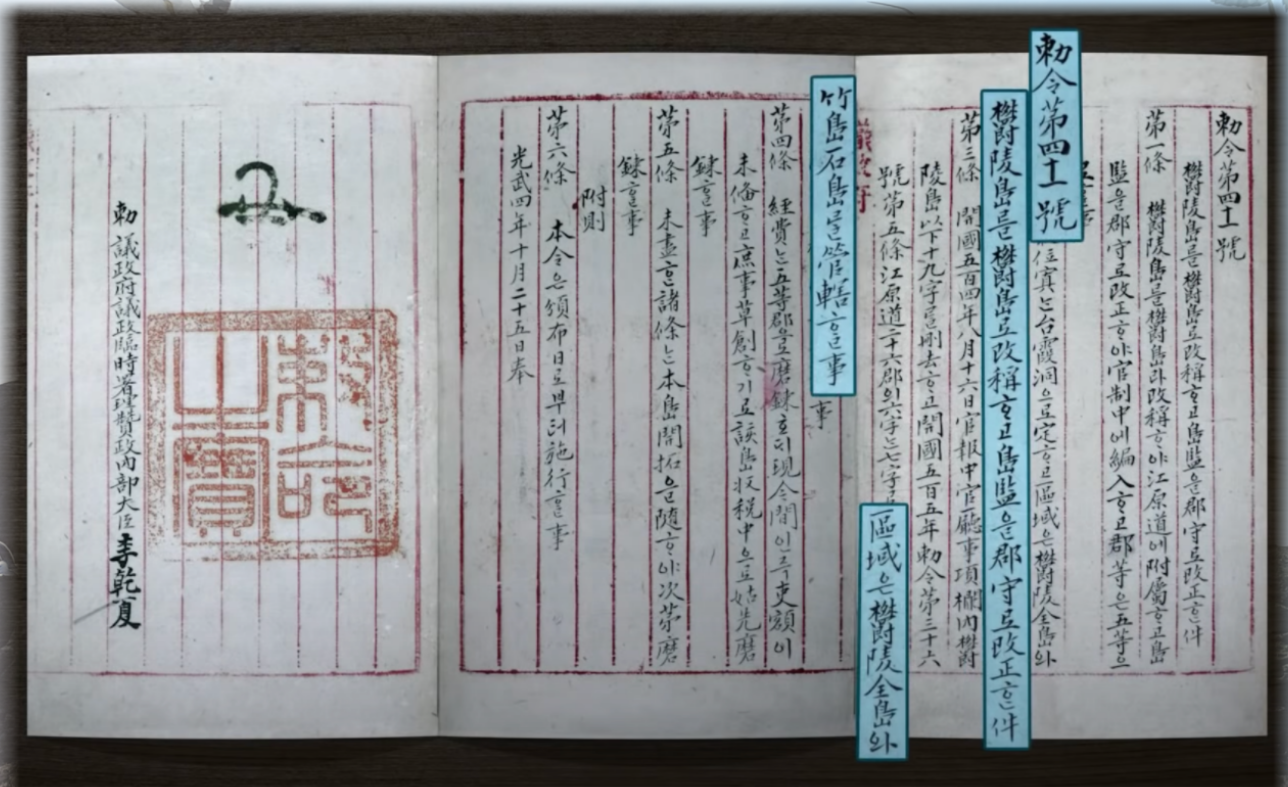 勅令第四十一號
欝陵島를欝島로改稱ᄒᆞ고島監을郡守로改正ᄒᆞᆫ件
第一條 欝陵島를欝島라改稱ᄒᆞ야江原道에附屬ᄒᆞ고島
監을郡守로改正ᄒᆞ야官制中에編入ᄒᆞ고郡等은五等으
勅令第四十一號
位寘ᄂᆞᆫ台霞洞으로定ᄒᆞ고區域은欝陵全島와
欝陵島를欝島로改稱ᄒᆞ고島監을郡守로改正ᄒᆞᆫ件
第三條 開國五百四年八月十六日官報中官廳事項欄內欝
陵島以下十九字를刪去ᄒᆞ고開國五百五年勅令第三十六
號第五條江原道二十六郡의六字ᄂᆞᆫ七字로
區域은欝陵全島와
竹島石島를管轄ᄒᆞᆯ事
事
第四條 經費ᄂᆞᆫ五等郡으로磨鍊호ᄃᆡ現今間인즉吏額이
未備ᄒᆞ고庶事草創ᄒᆞ기로該島收稅中으로姑先磨
鍊ᄒᆞᆯ事
第五條 未盡ᄒᆞᆫ諸條ᄂᆞᆫ本島開拓을隨ᄒᆞ야次第磨
鍊ᄒᆞᆯ事
附則
第六條 本令은頒布日로부터施行ᄒᆞᆯ事
光武四年十月二十五日奉
勅 議政府議政臨時署理贊政內部大臣李乾夏
勅命
之寶